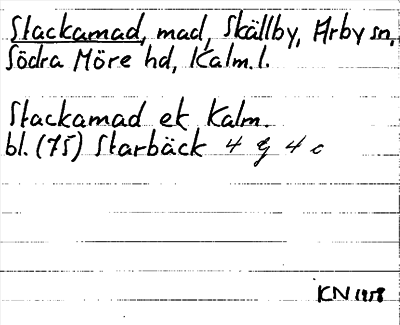 Stackamad, mad, Skällby, Arby sn,
Södra Möre hd, Kalm. l.
Stackamad ek Kalm.
bl. (75) Starbäck 4 g 4 c
KN 1958